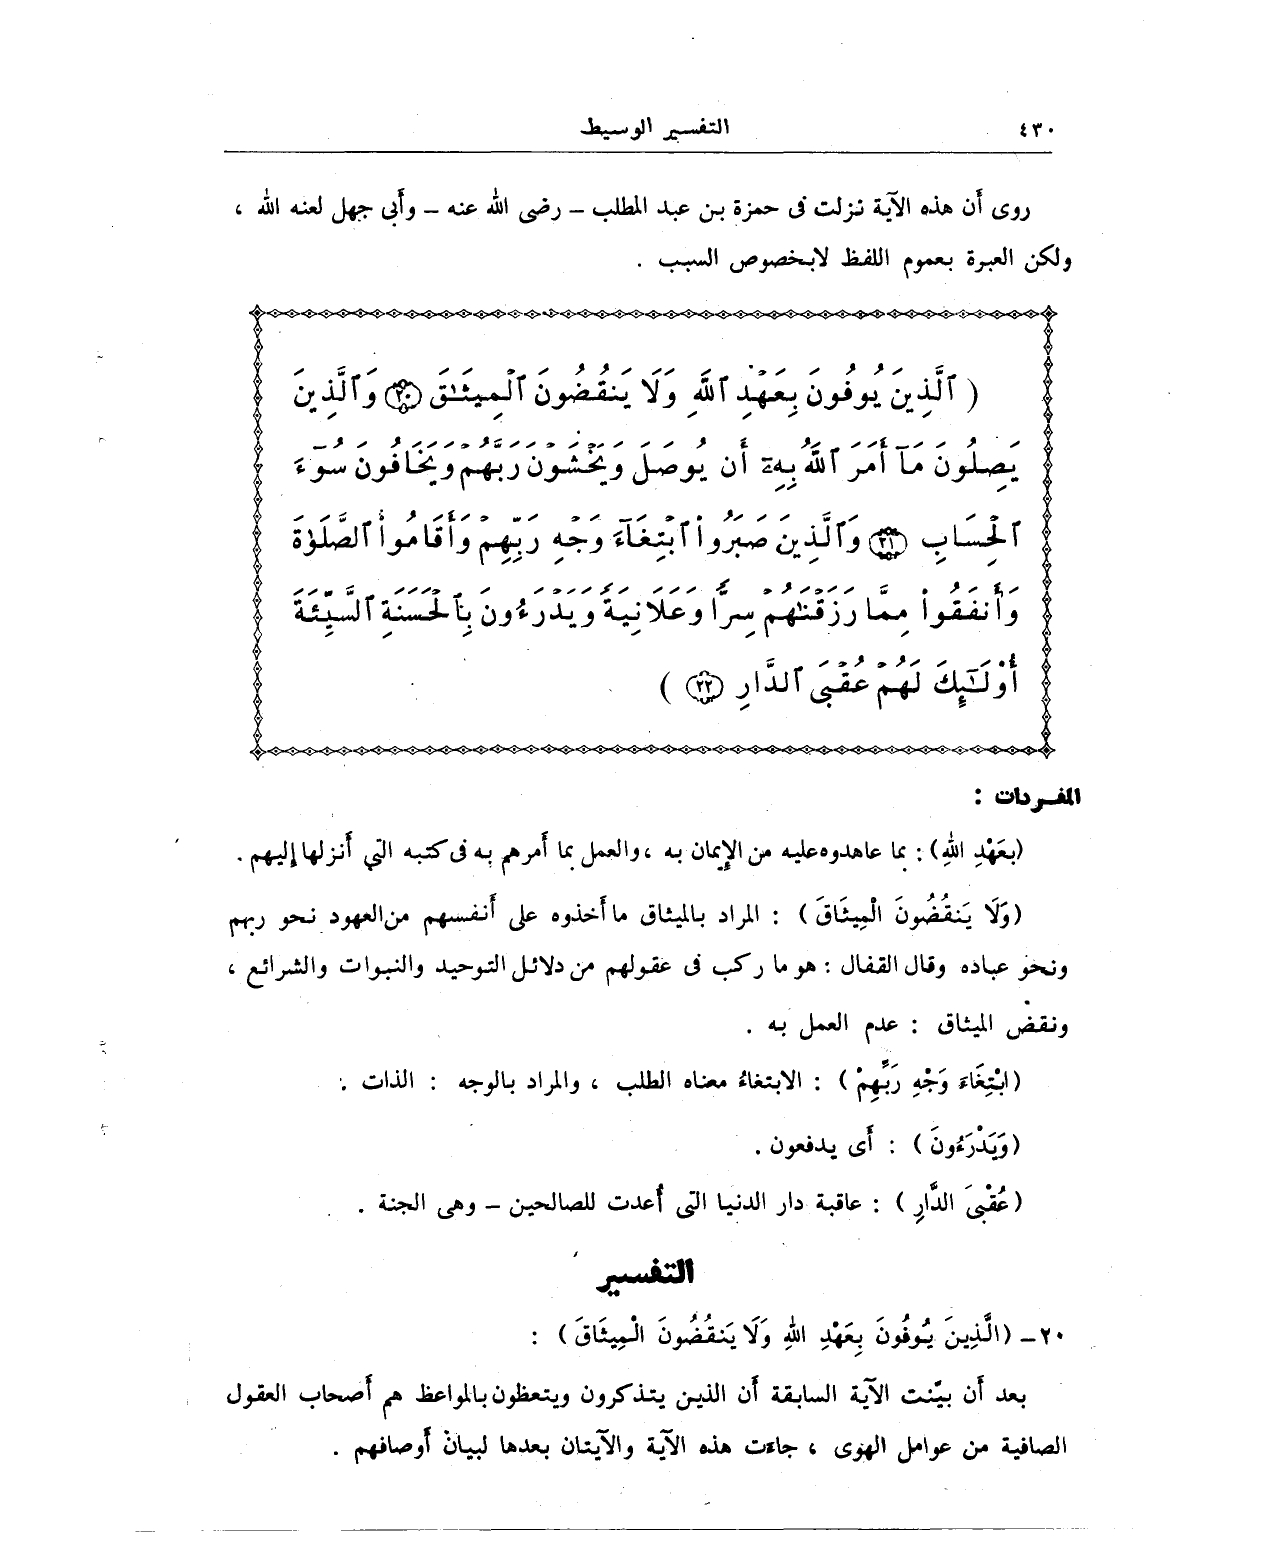 ٤٣٠ التفسير الوسيط
روى أن هذه الآية نزلت فى حمزة بن عبد المطلب – رضى الله عنه – وأبى جهل لعنه الله ،
ولكن العبرة بعموم اللفظ لابخصوص السبب .
( ٱلَّذِينَ يُوفُونَ بِعَهْدِ ٱللَّهِ وَلَا يَنقُضُونَ ٱلْمِيثَٰقَ ٢٠ وَٱلَّذِينَ
يَصِلُونَ مَآ أَمَرَ ٱللَّهُ بِهِۦٓ أَن يُوصَلَ وَيَخْشَوْنَ رَبَّهُمْ وَيَخَافُونَ سُوٓءَ
ٱلْحِسَابِ ٢١ وَٱلَّذِينَ صَبَرُوا۟ ٱبْتِغَآءَ وَجْهِ رَبِّهِمْ وَأَقَامُوا۟ ٱلصَّلَوٰةَ
وَأَنفَقُوا۟ مِمَّا رَزَقْنَٰهُمْ سِرًّا وَعَلَانِيَةً وَيَدْرَءُونَ بِٱلْحَسَنَةِ ٱلسَّيِّئَةَ
أُو۟لَٰٓئِكَ لَهُمْ عُقْبَى ٱلدَّارِ ٢٢ )
المفردات :
(بِعَهْدِ اللهِ) : بما عاهدوه عليه من الإيمان به ، والعمل بما أمرهم به فى كتبه التي أنزلها إليهم .
(وَلَا يَنقُضُونَ الْمِيثَاقَ) : المراد بالميثاق ما أخذوه على أنفسهم من العهود نحو ربهم
ونحو عباده وقال القفال : هو ما ركب فى عقولهم من دلائل التوحيد والنبوات والشرائع ،
ونقض الميثاق : عدم العمل به .
(ابْتِغَاءَ وَجْهِ رَبِّهِمْ) : الابتغاءُ معناه الطلب ، والمراد بالوجه : الذات .
(وَيَدْرَءُونَ) : أَى يدفعون .
(عُقْبَى الدَّارِ) : عاقبة دار الدنيا التى أُعدت للصالحين – وهى الجنة .
التفسير
٢٠– (الَّذِينَ يُوفُونَ بِعَهْدِ اللهِ وَلَا يَنقُضُونَ الْمِيثَاقَ) :
بعد أن بيّنت الآية السابقة أن الذين يتذكرون ويتعظون بالمواعظ هم أصحاب العقول
الصافية من عوامل الهوى ، جاءت هذه الآية والآيتان بعدها لبيان أوصافهم .